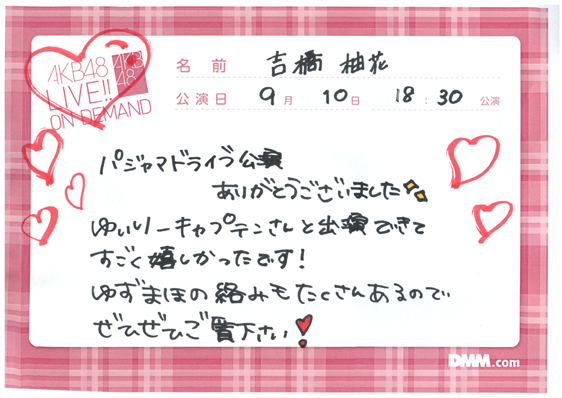 AKB48
LIVE!!
ON DEMAND
AKB
48
名前 吉橋 柚花
公演日 9月 10日 18:30 公演
パジャマドライブ公演
ありがとうございました
ゆいりーキャプテンさんと出演できて
すごく嬉しかったです!
ゆずまほの絡みもたくさんあるので
ぜひぜひご覧下さい!
DMM.com